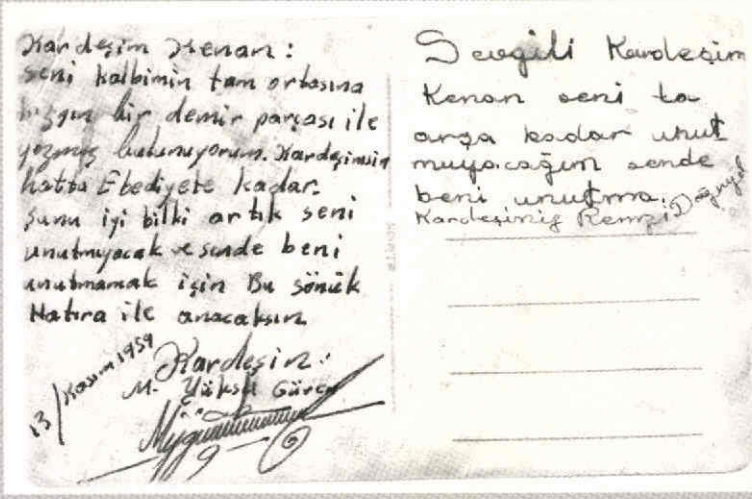 Kardeşim Kenan:
seni kalbimin tam ortasına
kızgın bir demir parçası ile
yazmış bulunuyorum. Kardeşimsin
hatta Ebediyete kadar.
Şunu iyi bilki artık seni
unutmıyacak ve sende beni
unutmamak için Bu sönük
Hatıra ile anacaksın
Kardeşin:
M. Yüksel
13/Kasım 1959
Sevgili Kardeşim
Kenan seni ta
arşa kadar unut
muyacağım sende
beni unutma.
Kardeşiniz Remzi